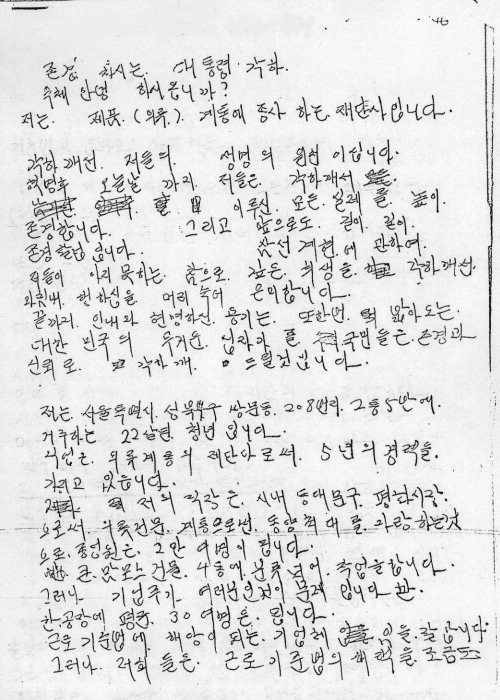 존경 하시는. 대통령 각하.
옥체 안녕 하시옵니까?
저는. 제품. (의류). 계통에 종사 하는. 재단사입니다.
각하께선. 저들의. 생명의 원선 이십니다.
혁명후 오늘날 까지 저들은. 각하께서
이루신. 모든. 일에 를. 높이.
존경합니다. 그리고 앞으로도. 길이. 길이.
존경할겁니다. 삼선개헌.에 관하여.
저들이 아지 못하는. 참으로. 깊은. 희생을. 각하께선.
행하심을. 머리 숙여 은미합니다.
끝까지. 인내와 현명하신. 용기는. 또한번. 밝아오는.
대한 민국의 무거운. 십자가 를. 국민들은. 존경과
신뢰로. 각하께. 드릴것입니다.
저는. 서울특별시. 성북구 쌍문동. 208번지. 2통 5반에.
거주하는 22살된. 청년입니다.
직업은. 의류계통의 재단사로써. 5년의 경력을.
가지고 있읍니다.
저의 직장은. 시내 동대문구. 평화시장.
으로써. 의류전문. 계통으로썬. 동양 최대를. 자랑하는것
으로. 종업원은. 2만 여명이 됩니다.
큰. 맞모스 건물. 4동에 분류되어. 작업을합니다.
그러나 기업주가. 여러분인것이 문제 입니다 만.
한공장에 평균. 30여명은. 됩니다.
근로 기준법에. 해당이 되는. 기업체 임을. 잘 압니다.
그러나. 저희 들은. 근로기준법의 혜택을. 조금도